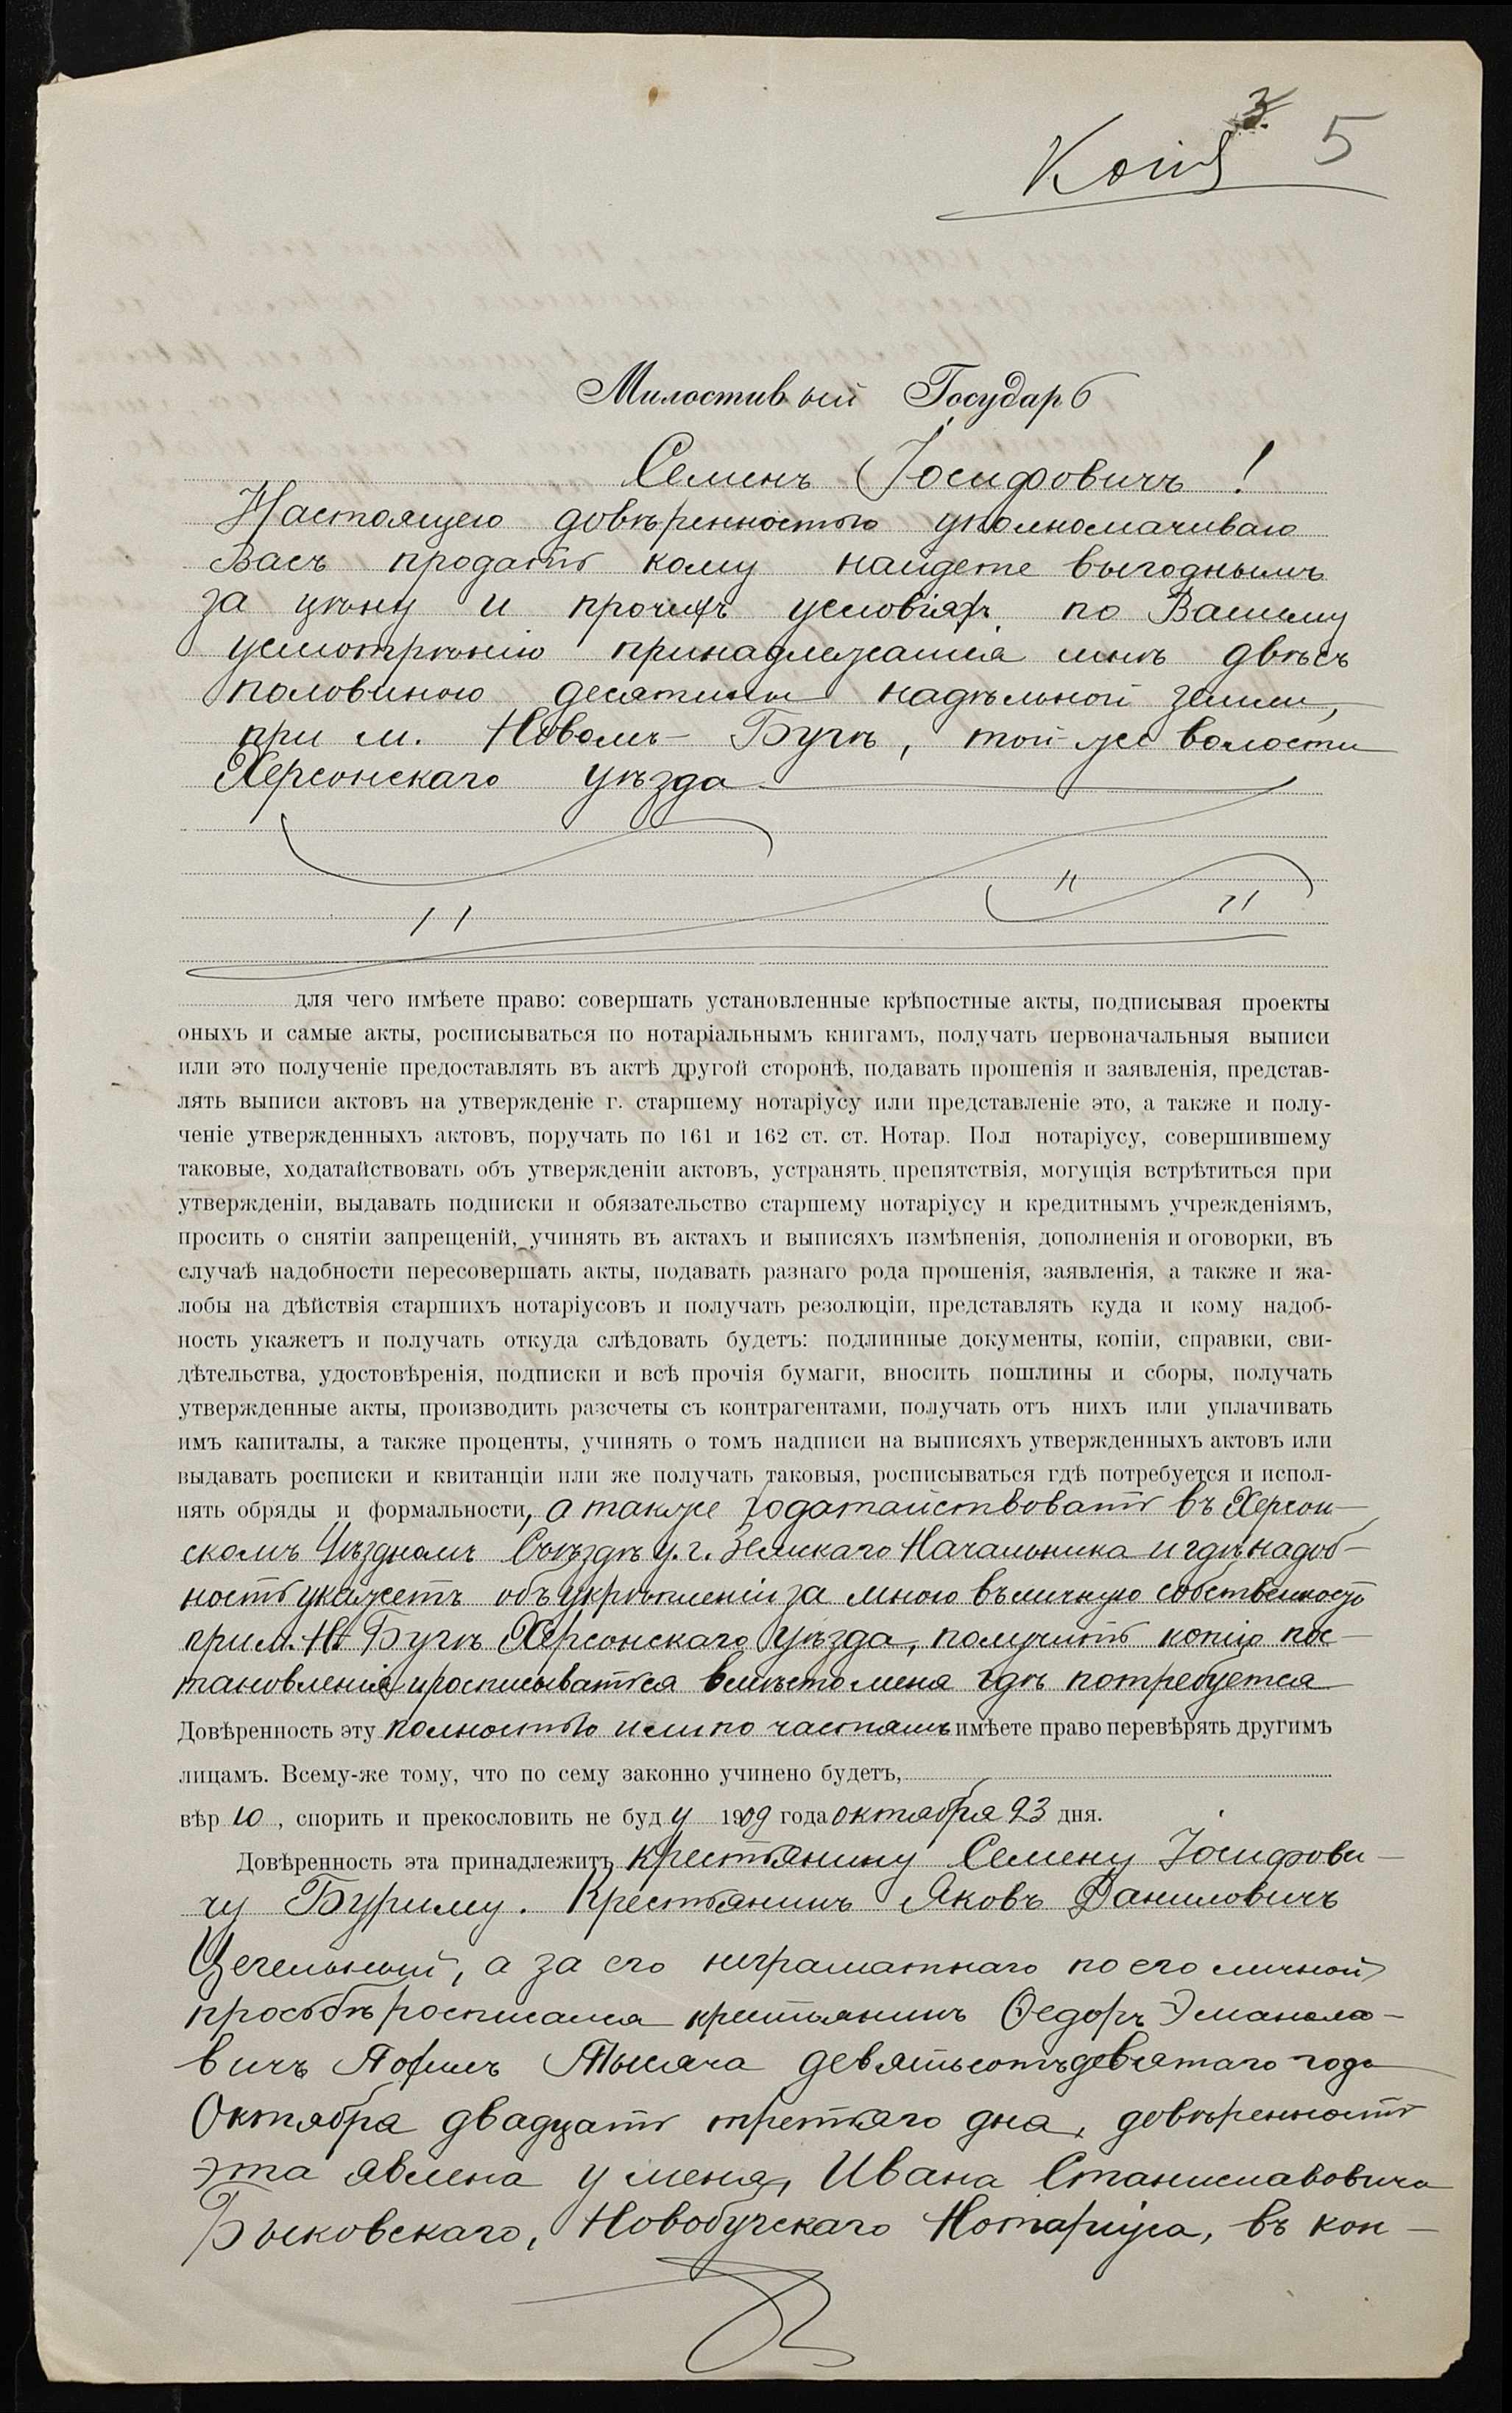 3
5
Копія
Милостивый Государь
Семенъ Іосифовичъ!
Настоящею довѣренностью уполномачиваю
Васъ продать кому найдете выгоднымъ
за цѣну и прочихъ условіяхъ по Вашему
усмотрѣнію принадлежащія мнѣ двѣ съ
половиною десятины надѣльной земли,
при м. Новомъ-Бугѣ, той-же волости
Херсонскаго уѣзда
для чего имѣете право: совершать установленные крѣпостные акты, подписывая проекты
оныхъ и самые акты, росписываться по нотаріальнымъ книгамъ, получать первоначальныя выписи
или это полученіе предоставлять въ актѣ другой сторонѣ, подавать прошенія и заявленія, представ-
лять выписи актовъ на утвержденіе г. старшему нотаріусу или представленіе это, а также и полу-
ченіе утвержденныхъ актовъ, поручать по 161 и 162 ст. ст. Нотар. Пол нотаріусу, совершившему
таковые, ходатайствовать объ утвержденіи актовъ, устранять препятствія, могущія встрѣтиться при
утвержденіи, выдавать подписки и обязательство старшему нотаріусу и кредитнымъ учрежденіямъ,
просить о снятіи запрещеній, учинять въ актахъ и выписяхъ измѣненія, дополненія и оговорки, въ
случаѣ надобности пересовершать акты, подавать разнаго рода прошенія, заявленія, а также и жа-
лобы на дѣйствія старшихъ нотаріусовъ и получать резолюціи, представлять куда и кому надоб-
ность укажетъ и получать откуда слѣдовать будетъ: подлинные документы, копіи, справки, сви-
дѣтельства, удостовѣренія, подписки и всѣ прочія бумаги, вносить пошлины и сборы, получать
утвержденные акты, производить разсчеты съ контрагентами, получать отъ нихъ или уплачивать
имъ капиталы, а также проценты, учинять о томъ надписи на выписяхъ утвержденныхъ актовъ или
выдавать росписки и квитанціи или же получать таковыя, росписываться гдѣ потребуется и испол-
нять обряды и формальности, а также ходатайствовать въ Херсон-
скомъ Уѣздномъ Съѣздѣ у. г. Земскаго Начальника и гдѣ надоб-
ность укажетъ объ укрѣпленіи за мною въ личную собственность
при м. Н Бугѣ Херсонскаго уѣзда, получить копію пос-
тановленія и росписываться вмѣсто меня гдѣ потребуется
Довѣренность эту полностью или по частямъ имѣете право перевѣрять другимъ
лицамъ. Всему-же тому, что по сему законно учинено будетъ,
вѣрю, спорить и прекословить не буду 1909 года октября 23 дня.
Довѣренность эта принадлежитъ крестьянину Семену Іосифови-
чу Буриму. Крестьянинъ Яковъ Даниловичъ
Цегельный, а за его неграматнаго по его личной
просьбѣ росписался крестьянинъ Федоръ
вичъ Тысяча девятьсотъ девятаго года
Октября двадцать третьяго дня, довѣренность
эта явлена у меня, Ивана Станиславовича
Быковскаго, Новобугскаго Нотаріуса, въ кон-